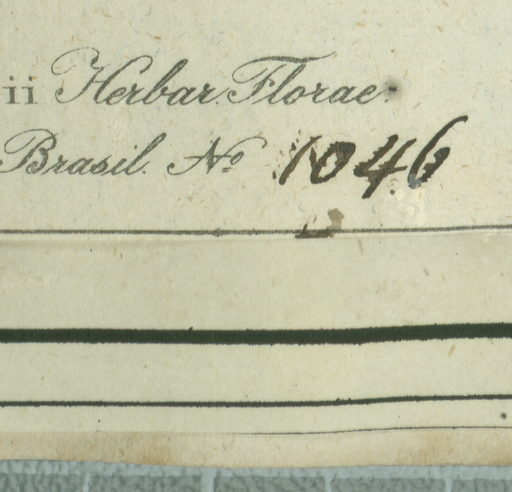 ii Herbar. Florae
Brasil. No 1046